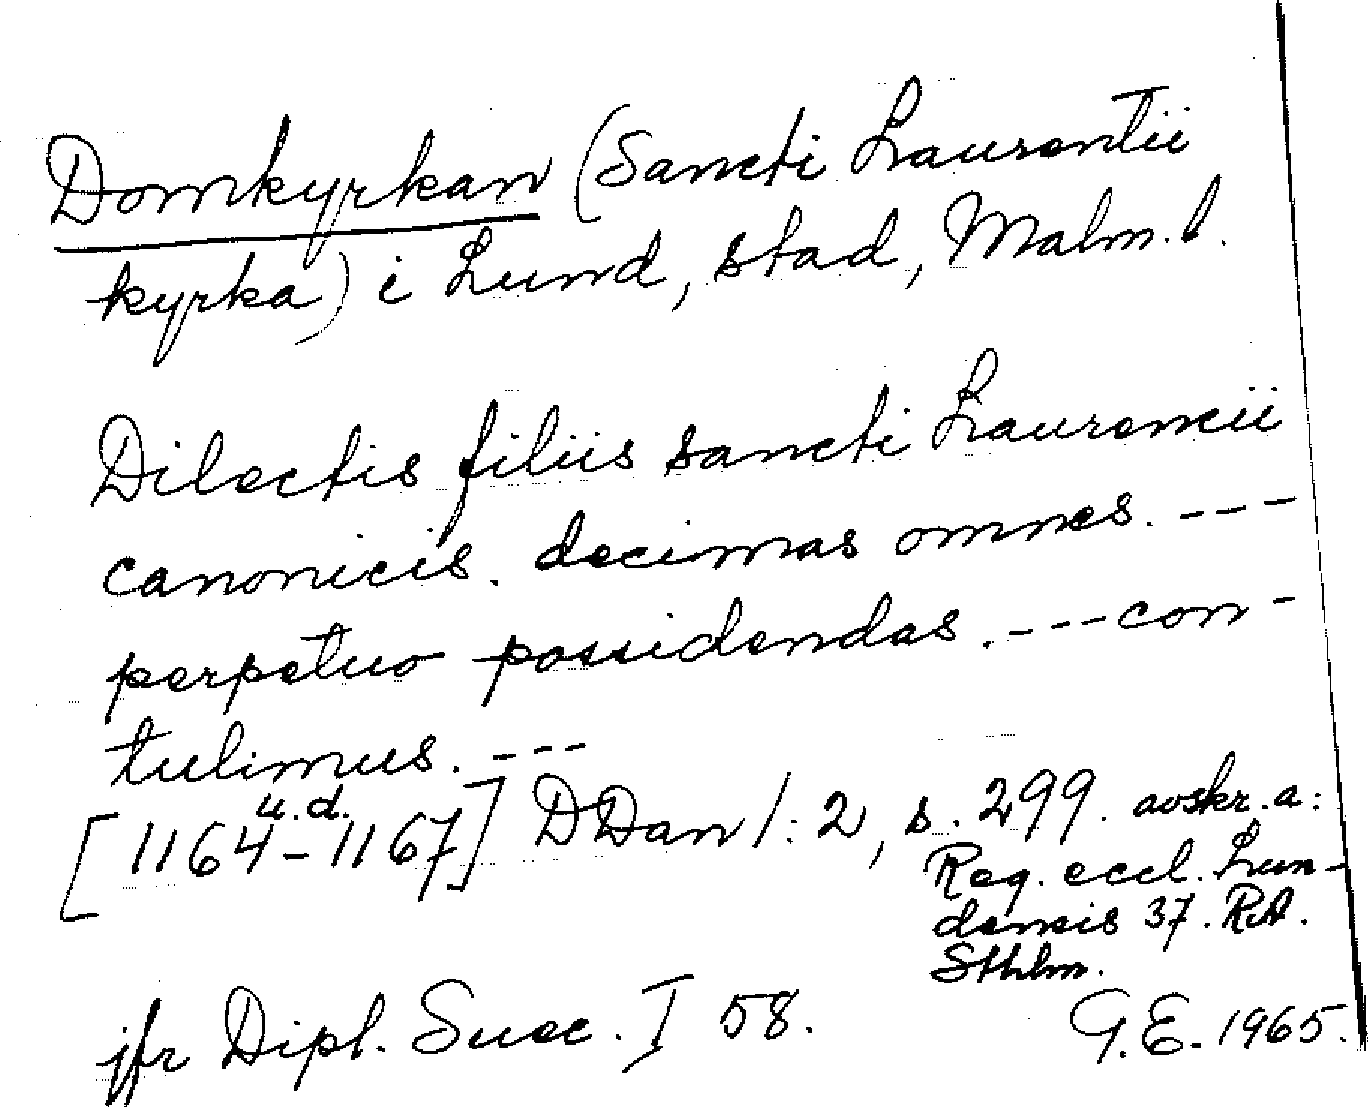 Domkyrkan (Sancti Laurentii
kyrka) i Lund, stad, Malm. l.
Dilectis filiis sancti Laurencii
canonicis. decimas omnes. ---
perpetuo possidendas. --- con-
tulimus. ---
u. d.
[1164-1167] DDan 1:2, s. 299. avskr. a:
Reg. eccl. Lun-
densis 37. RA.
Sthlm.
jfr Dipl. Suec. I 58.
G. E. 1965.